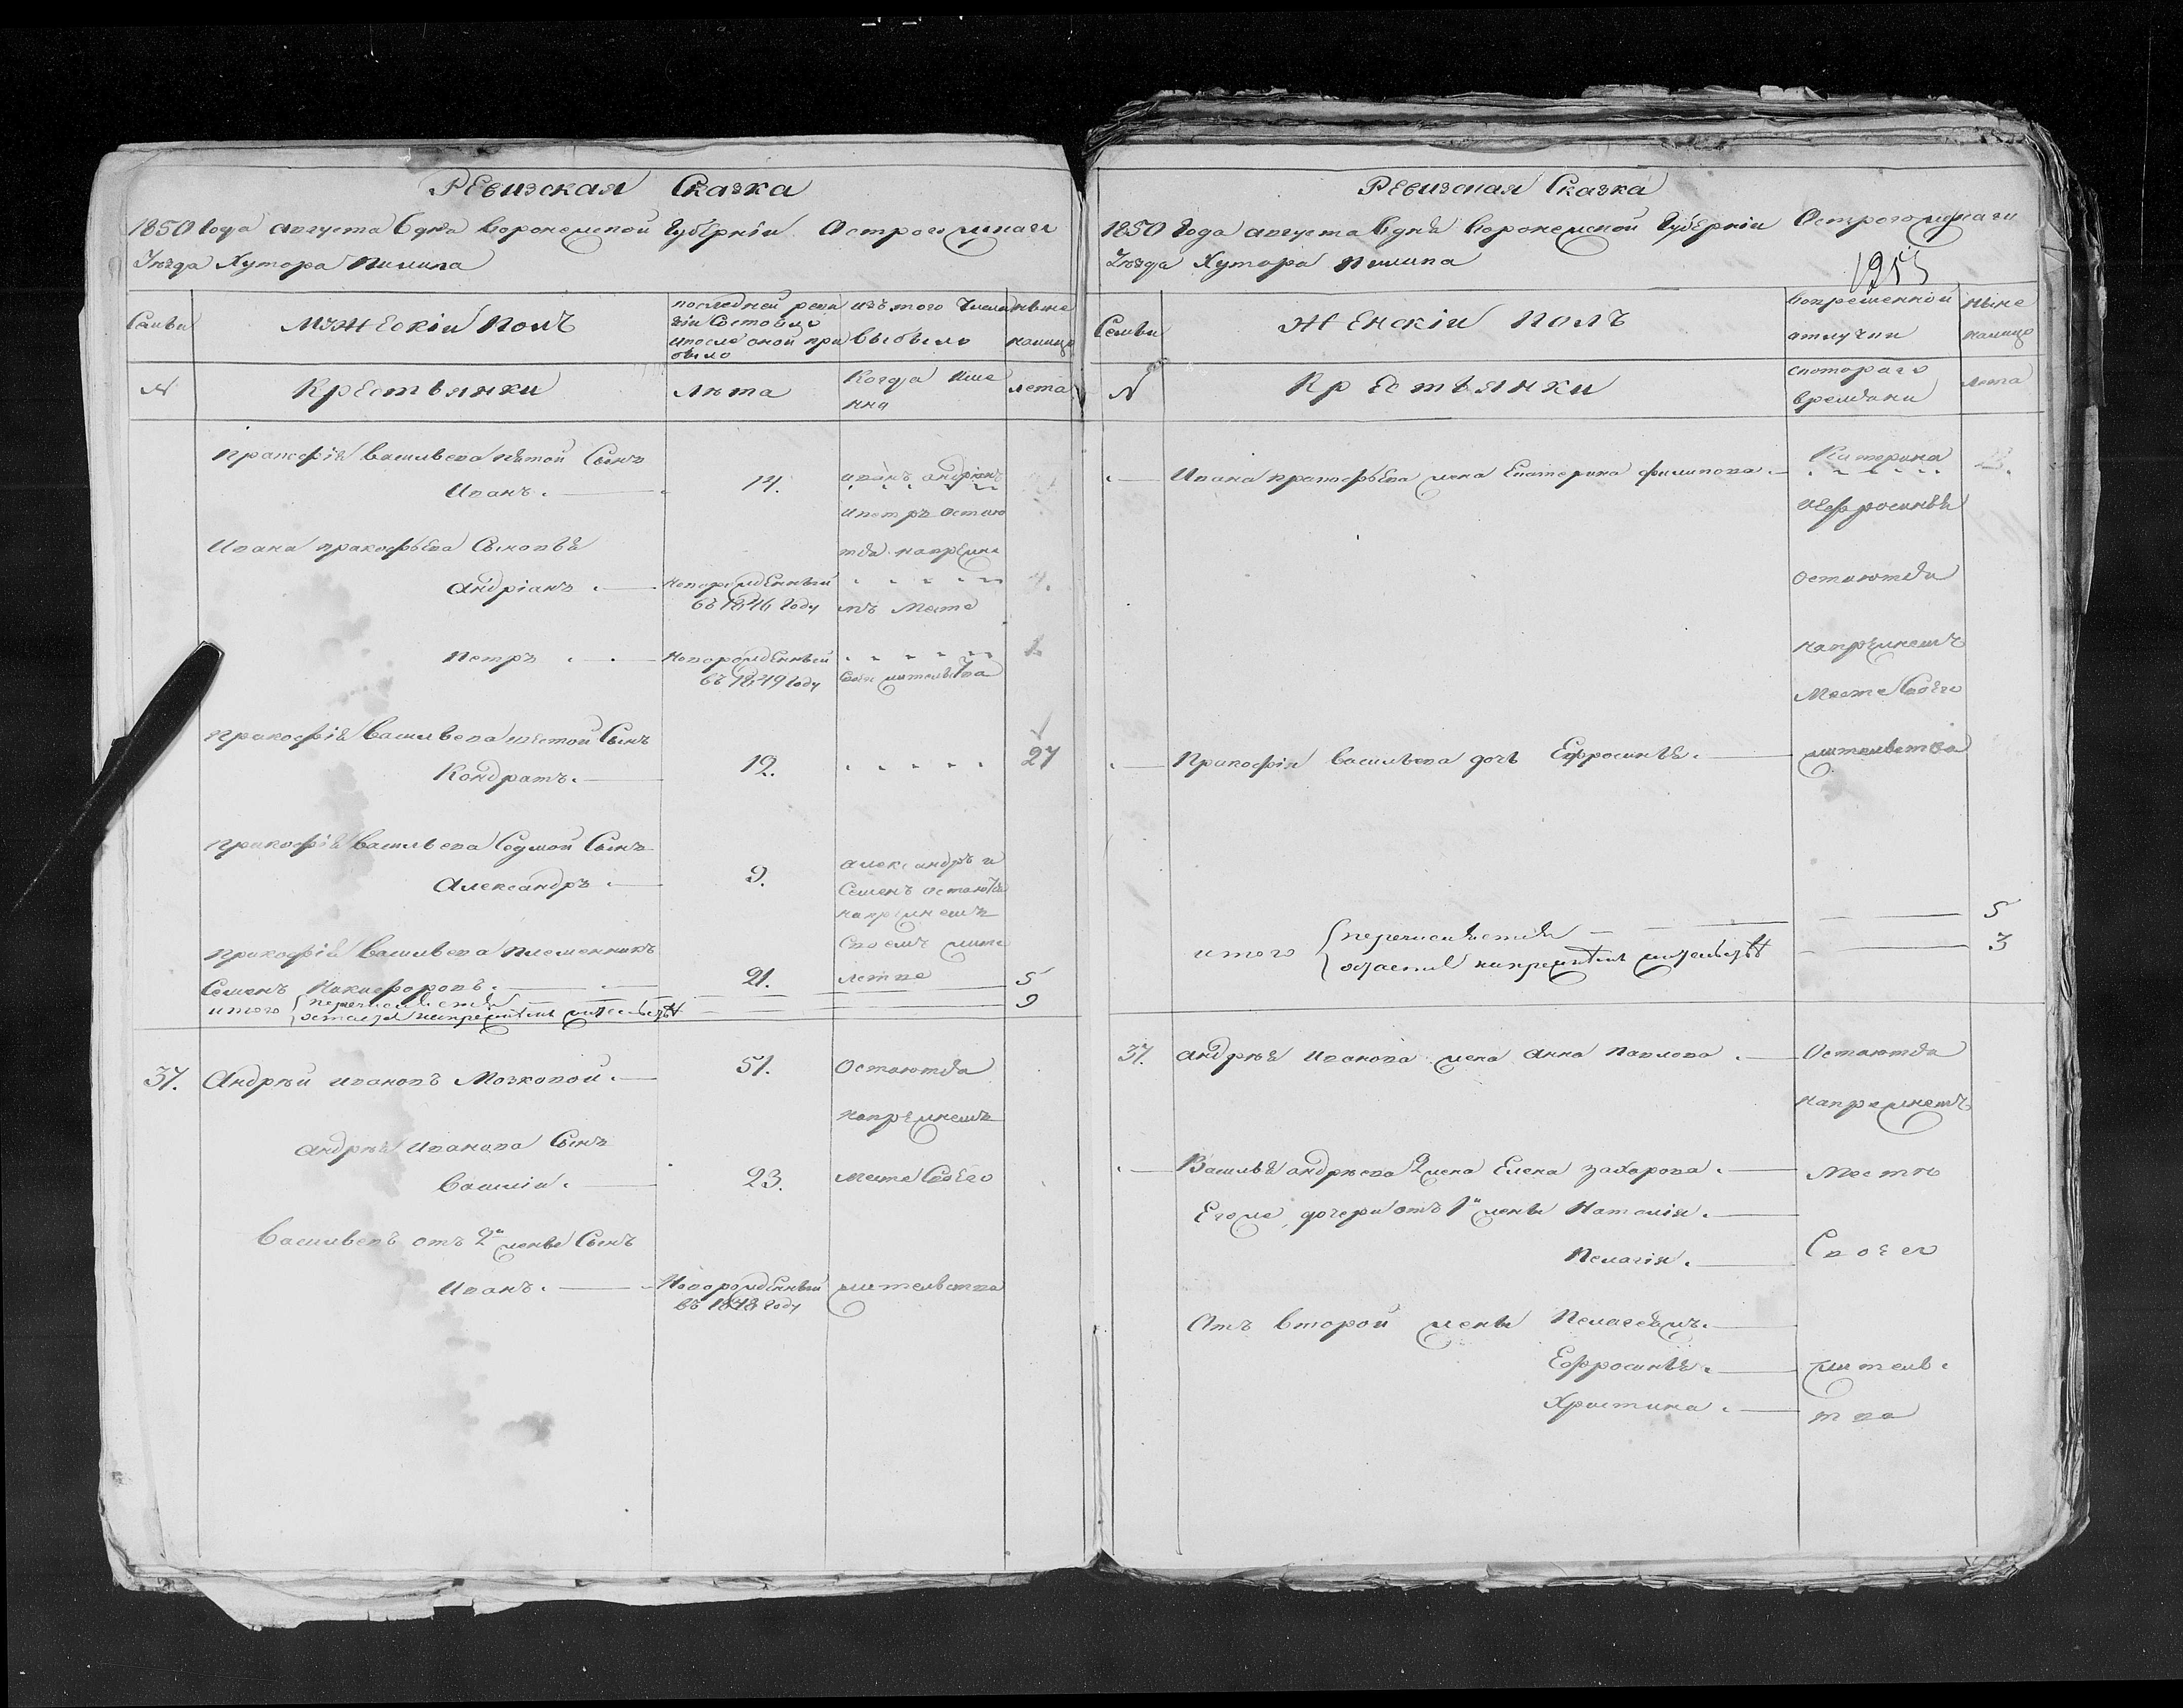 Ревизская Сказка
1850 Года августа 6 дня Воронежской Губернии Острогожскаго
Уезда Хутора Пилипа
Семьи
Мужескій Полъ
последней реви
зіи Состояло
и после оной при
было
изъ того Числа
выбыло
ныне
налицо
№
Крестьянки
Лѣта
Когда Име
нна
лета
Пракофія Васильева пятой Сынъ
Иванъ.
14.
Иванъ Андріянъ
и Петръ Остаю
Ивана пракофьева Сыновья
тся напрежне
Андріанъ
Новорожденный
въ 1846 Году
мъ Месте
4.
Петръ
Новорожденный
въ 1849 Году
Свои жительства
1.
Пракофія Васильева шестой Сынъ
Кондратъ.
12.
27
Пракофія Васильева Седмой Сынъ
Александръ
9.
Александръ и
Семенъ остаются
напрежнемъ
Своемъ жите
Пракофія Васильева племенникъ
Семенъ Никифоровъ.
21.
льстве
5
итого перечисляется
остается напрежнемъ жительстве
9
37.
Андрей Ивановъ Мозковой.
51.
Остаются
напрежнемъ
Андрея Иванова Сынъ
Василій.
23.
месте Своего
Васильевъ отъ 2й жены Сынъ
Иванъ.
Новорожденный
въ 1848 Году
жительства
Ревизская Сказка
1850 Года августа 6 дня Воронежской Губерніи Острогожскаго
Уезда Хутора Пилипа
Семьи
Женскій Полъ
вовременной
отлучки
ныне
налицо
№
Крестьянки
скотораго
времени
лета
Ивана пракофьева жена Екатерина филипова
Катерина
и Ефросинья
Остаются
напрежнемъ
Месте Своего
Пракофія Васильева дочь Ефросинья.
жительства
итого перечисляется
5
остается напрежнемъ жительстве
3
37.
Андрея Иванова жена Анна Павлова
Остаются
напрежнемъ
Василья андреева 2 жена Елена захарова.
Местѣ
Егоже дочери отъ 1й жены Наталія.
Пелагія.
Своего
Отъ второй жены
Ефросинья.
житель
Христина.
тва